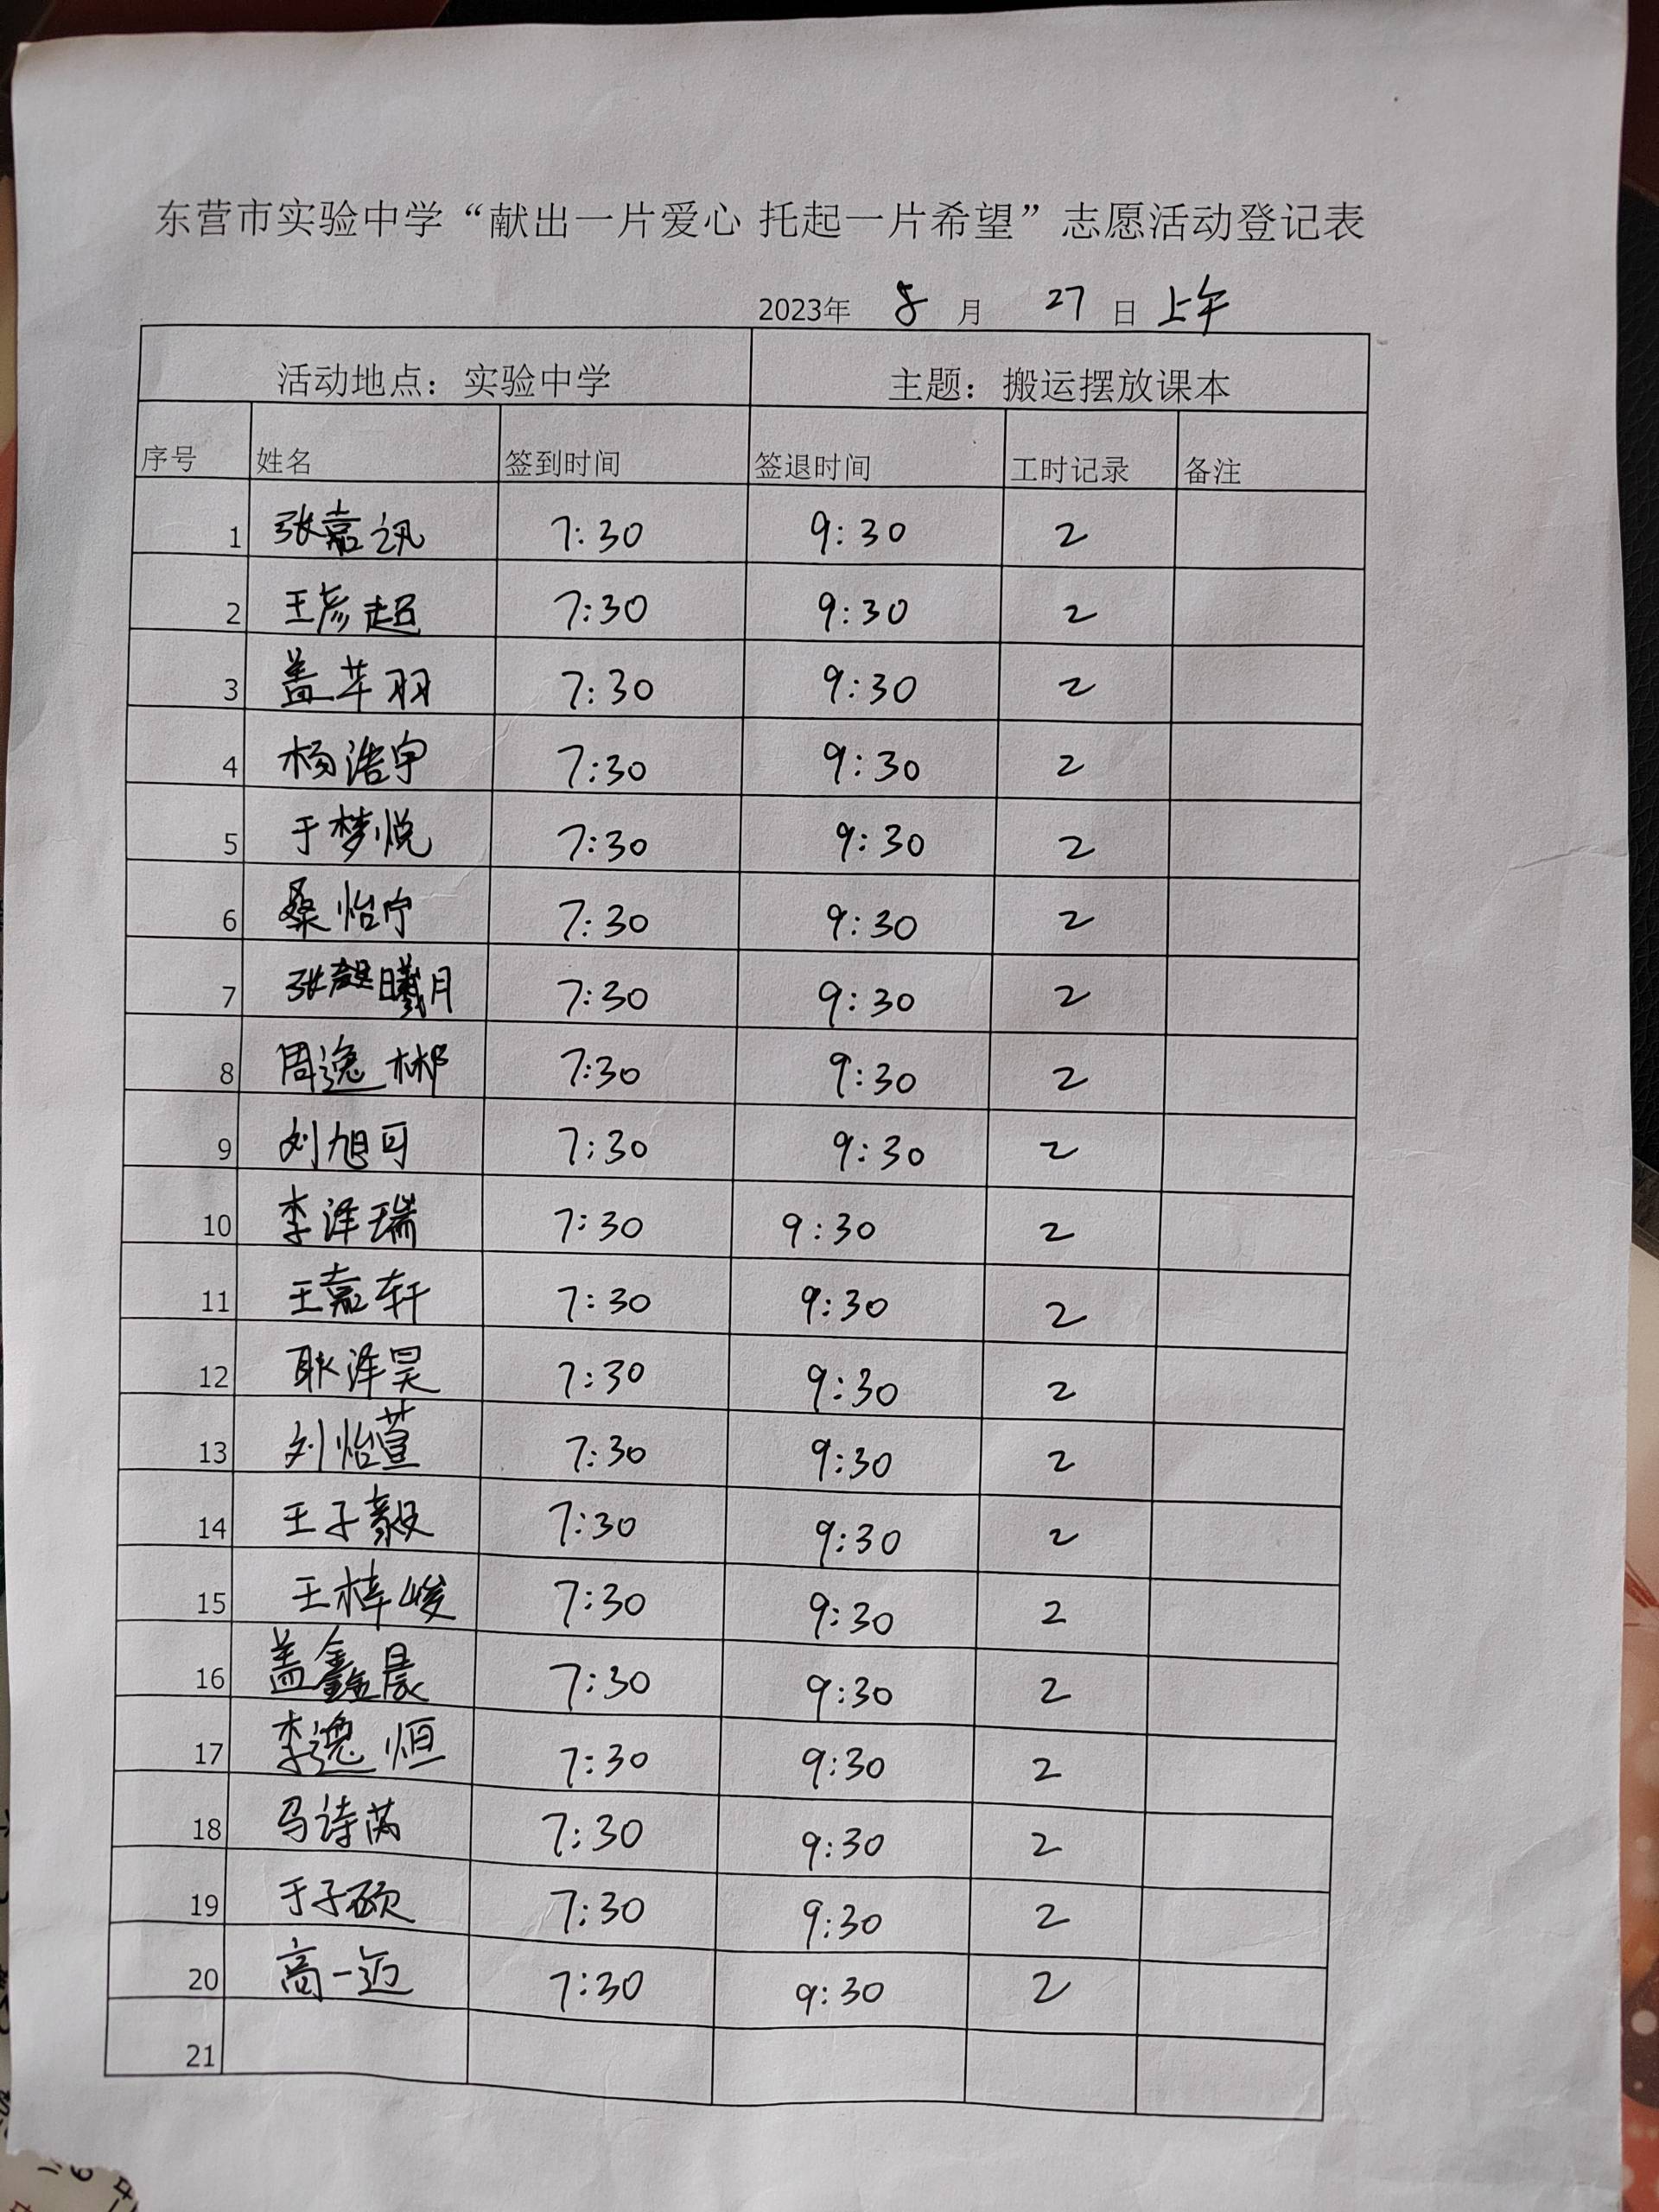 东营市实验中学“献出一片爱心 托起一片希望”志愿活动登记表
2023年 8 月 27 日 上午
活动地点：实验中学 主题：搬运摆放课本
序号 姓名 签到时间 签退时间 工时记录 备注
1 张嘉 7:30 9:30 2
2 王彦超 7:30 9:30 2
3 盖芊羽 7:30 9:30 2
4 杨浩宇 7:30 9:30 2
5 于梦悦 7:30 9:30 2
6 桑怡宁 7:30 9:30 2
7 张 曦月 7:30 9:30 2
8 周逸彬 7:30 9:30 2
9 刘旭可 7:30 9:30 2
10 李泽瑞 7:30 9:30 2
11 王嘉轩 7:30 9:30 2
12 耿泽昊 7:30 9:30 2
13 刘怡萱 7:30 9:30 2
14 王子毅 7:30 9:30 2
15 王梓峻 7:30 9:30 2
16 盖鑫晨 7:30 9:30 2
17 李逸恒 7:30 9:30 2
18 马诗芮 7:30 9:30 2
19 于子硕 7:30 9:30 2
20 高一迈 7:30 9:30 2
21